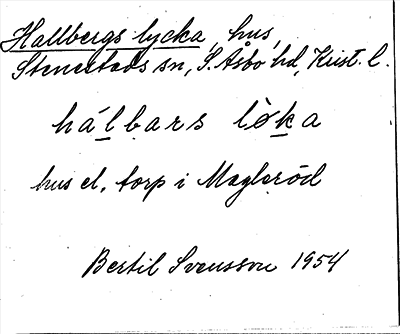 Hallbergs lycka, hus,
Stenestads sn, S. Åsbo hd, Krist. l.
hálbars lø̀ka
hus el. torp i Maglaröd
Bertil Svensson 1954